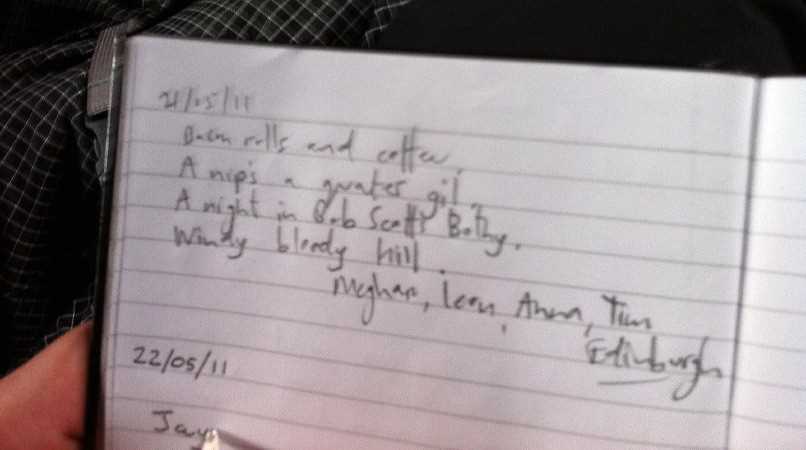 21/05/11
Bacon rolls and coffee,
A nip's a quater gil,
A night in Bob Scott's Bothy.
Windy bloody hill.
Meghan, Leon, Anna, Tim
Edinburgh
22/05/11
Jay